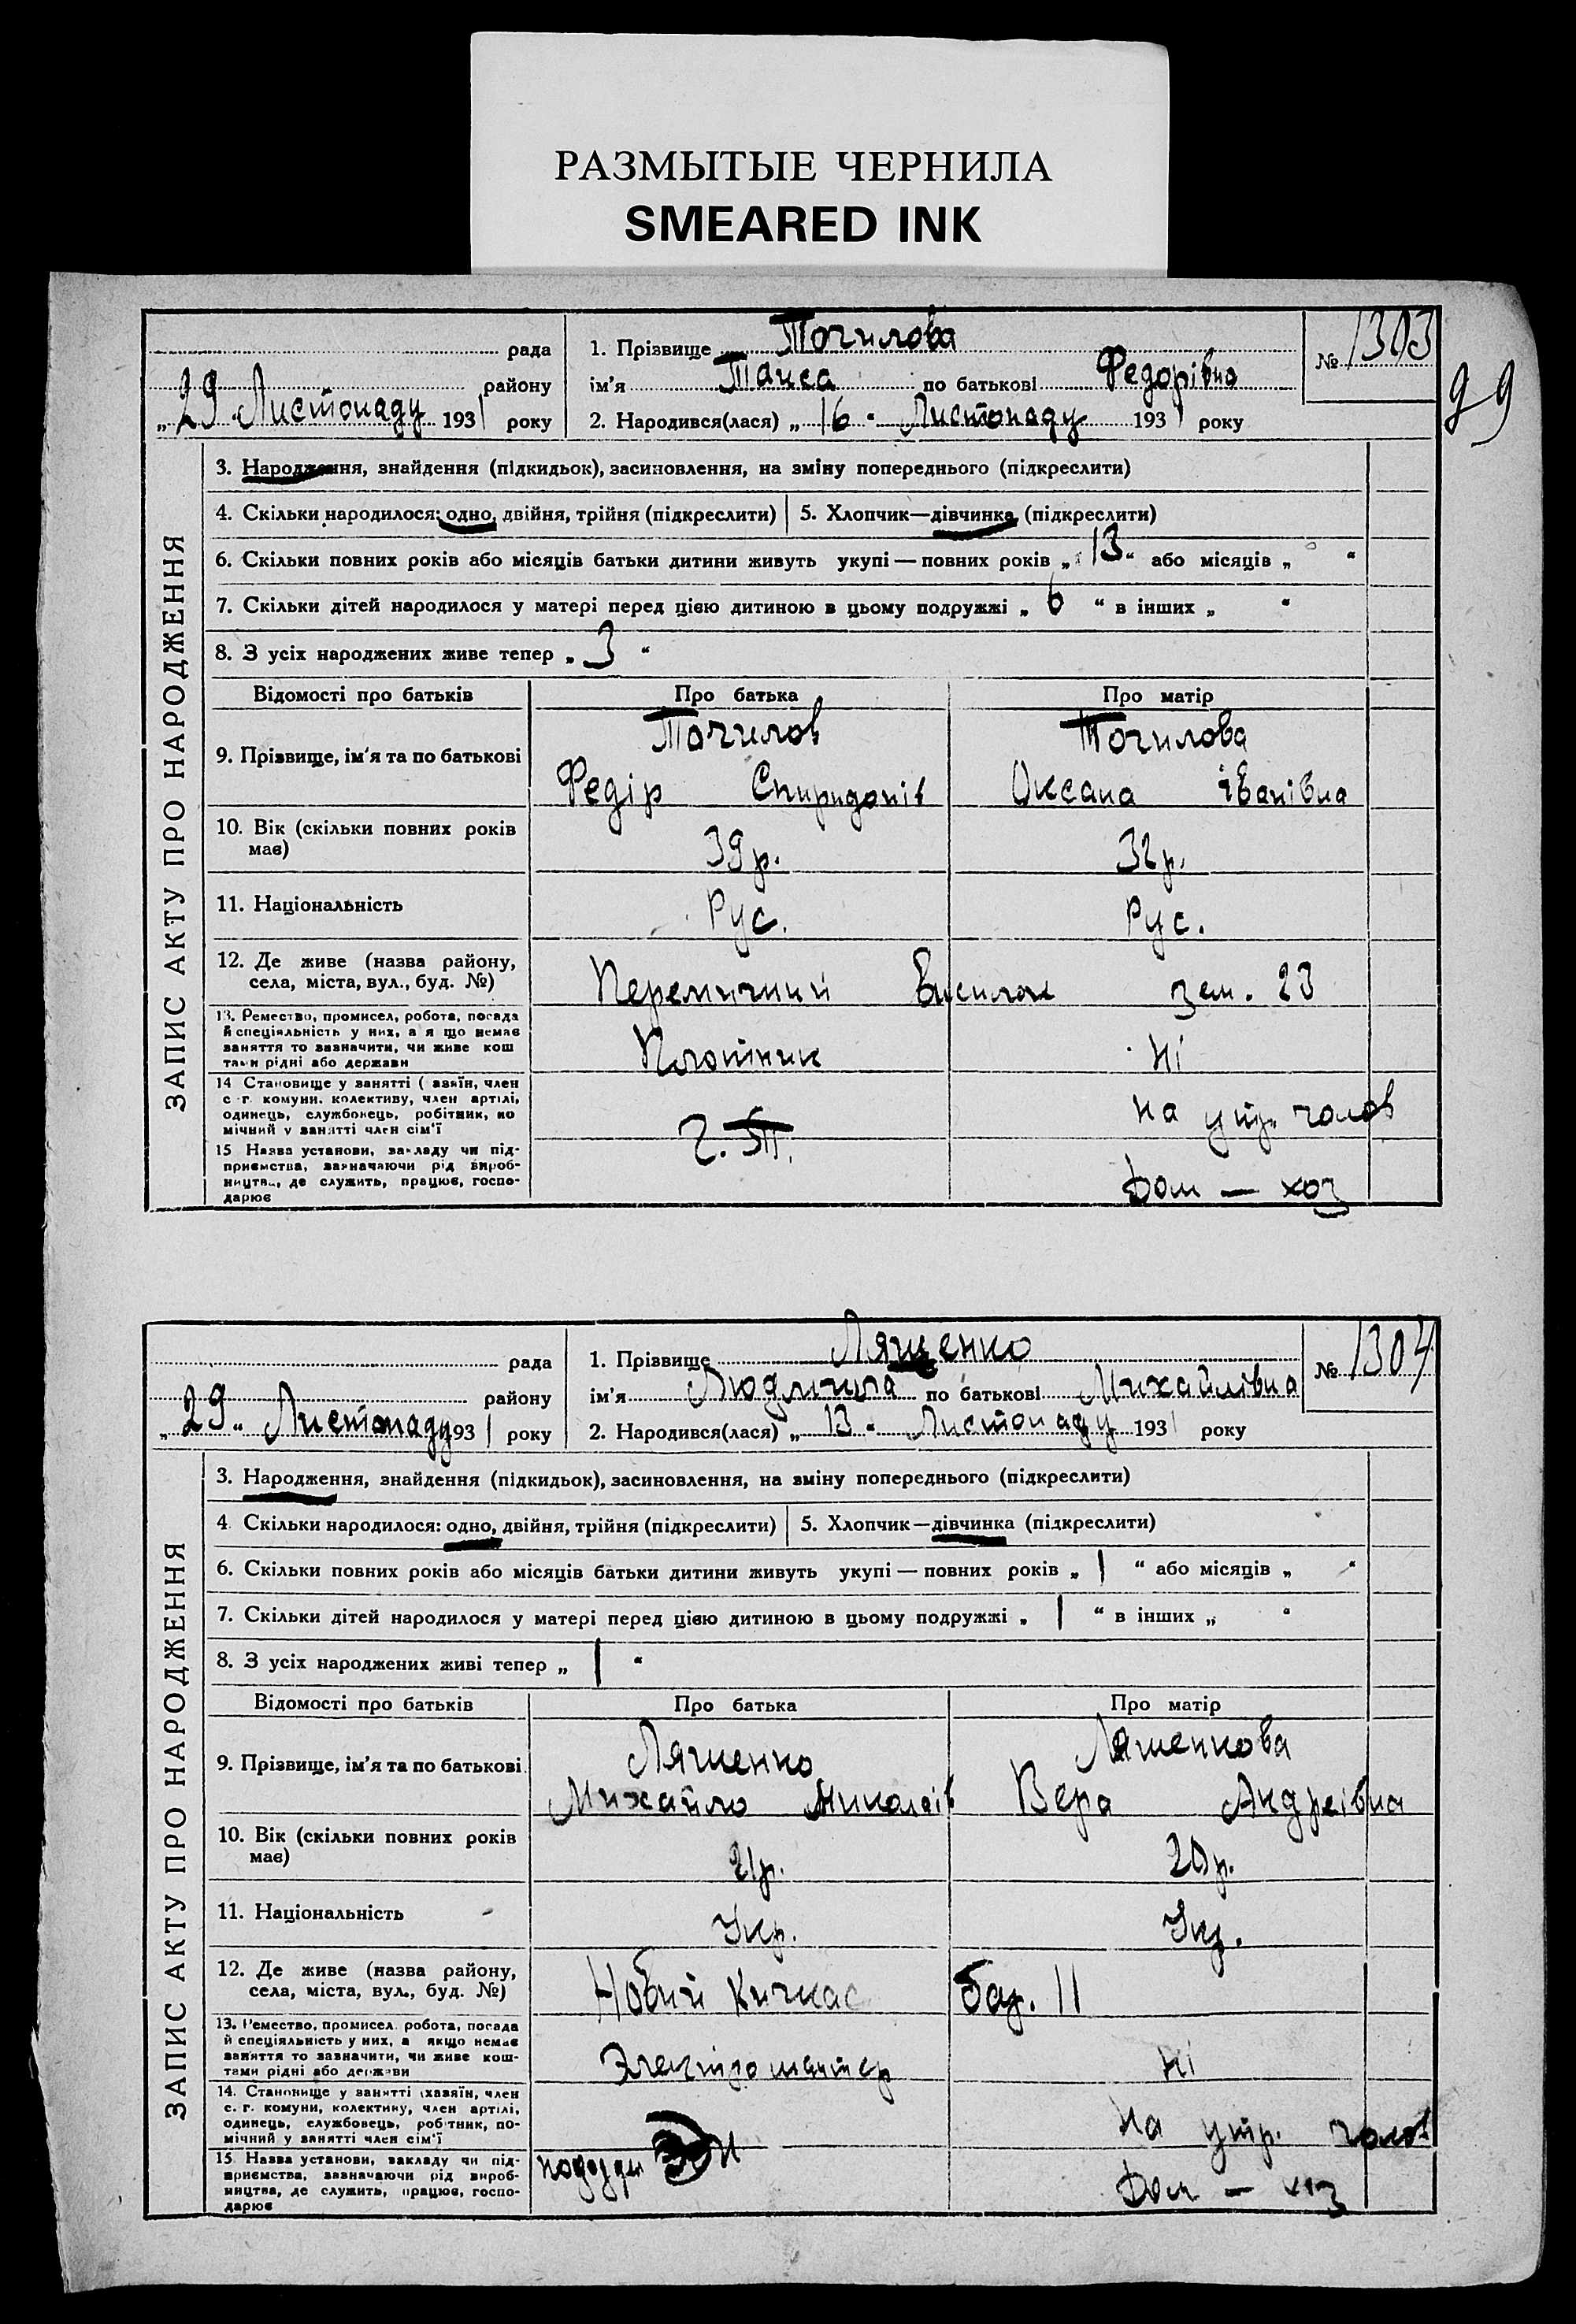 РАЗМЫТЫЕ ЧЕРНИЛА
SMEARED INK
99
рада 1. Прізвище Точилова № 1303
району ім'я Таиса по батькові Федорівна
„29" Листопаду 1931 року 2. Народився(лася) „16" Листопаду 1931 року
ЗАПИС АКТУ ПРО НАРОДЖЕННЯ
3. Народження, знайдення (підкидьок), засиновлення, на зміну попереднього (підкреслити)
4. Скільки народилося: одно, двійня, трійня (підкреслити) 5. Хлопчик—дівчинка (підкреслити)
6. Скільки повних років або місяців батьки дитини живуть укупі — повних років „13" або місяців „ "
7. Скільки дітей народилося у матері перед цією дитиною в цьому подружжі „6" в інших „ "
8. З усіх народжених живе тепер „3"
Відомості про батьків Про батька Про матір
9. Прізвище, ім'я та по батькові Точилов Точилова
Федір Спиридонів Оксана іванівна
10. Вік (скільки повних років має) 39 р. 32 р.
11. Національність Рус. Рус.
12. Де живе (назва району, села, міста, вул., буд. №) зем. 23
13. Ремество, промисел, робота, посада
й спеціяльність у них, а я що немає
заняття то зазначити, чи живе кош
тами рідні або держави
Ні
14 Становище у занятті ( авяїн, член
с г. комуни, колективу, член артілі,
одинець, службовець, робітник, по
мічний у занятті член сім'ї
на утр. голов
15 Назва установи, закладу чи під-
приємства, зазначаючи рід вироб-
ництва, де служить, працює, госпо-
дарює
Дом — хоз
рада 1. Прізвище Лященко № 1304
району ім'я Людмила по батькові Михайлівна
„29" Листопаду 1931 року 2. Народився(лася) „13" Листопаду 1931 року
ЗАПИС АКТУ ПРО НАРОДЖЕННЯ
3. Народження, знайдення (підкидьок), засиновлення, на зміну попереднього (підкреслити)
4. Скільки народилося: одно, двійня, трійня (підкреслити) 5. Хлопчик—дівчинка (підкреслити)
6. Скільки повних років або місяців батьки дитини живуть укупі — повних років „1" або місяців „ "
7. Скільки дітей народилося у матері перед цією дитиною в цьому подружжі „1" в інших „ "
8. З усіх народжених живі тепер „1"
Відомості про батьків Про батька Про матір
9. Прізвище, ім'я та по батькові Ляшенко Ляшенкова
Михайло Николаів Вера Андреівна
10. Вік (скільки повних років має) 21 р. 20 р.
11. Національність Укр. Укр.
12. Де живе (назва району, села, міста, вул., буд. №) Новий Кичкас бар. 11
13. Ремество, промисел, робота, посада
й спеціяльність у них, а якщо немає
заняття то зазначити, чи живе кош-
тами рідні або держави
Электромонтер Ні
14. Становище у занятті (хазяїн, член
с. г. комуни, колективу, член артілі,
одинець, службовець, робітник, по-
мічний у занятті член сім'ї
на утр. голов
15. Назва установи, закладу чи під-
приємства, зазначаючи рід вироб-
ництва, де служить, працює, госпо-
дарює
Дом — хоз